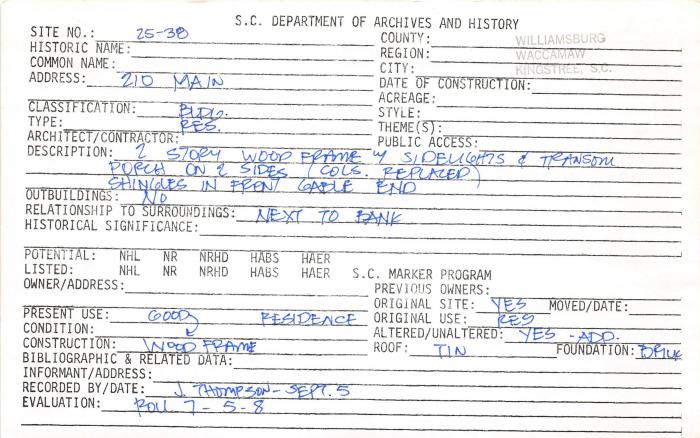 S.C. DEPARTMENT OF ARCHIVES AND HISTORY
SITE NO.: 25-38
COUNTY: WILLIAMSBURG
HISTORIC NAME:
REGION: WACCAMAW
COMMON NAME:
CITY: KINGSTREE, S.C.
ADDRESS: 210 MAIN
DATE OF CONSTRUCTION:
ACREAGE:
CLASSIFICATION: BLDG.
STYLE:
TYPE: RES.
THEME(S):
ARCHITECT/CONTRACTOR:
PUBLIC ACCESS:
DESCRIPTION: 2 STORY WOOD FRAME W/ SIDELIGHTS & TRANSOM
PORCH ON 2 SIDES (COLS. REPLACED)
SHINGLES IN FRONT GABLE END
OUTBUILDINGS: NO
RELATIONSHIP TO SURROUNDINGS: NEXT TO BANK
HISTORICAL SIGNIFICANCE:
POTENTIAL: NHL NR NRHD HABS HAER
LISTED: NHL NR NRHD HABS HAER S.C. MARKER PROGRAM
OWNER/ADDRESS:
PREVIOUS OWNERS:
ORIGINAL SITE: YES MOVED/DATE:
PRESENT USE: GOOD RESIDENCE
ORIGINAL USE: RES
CONDITION:
ALTERED/UNALTERED: YES - ADD.
CONSTRUCTION: WOOD FRAME
ROOF: TIN FOUNDATION: BRICK
BIBLIOGRAPHIC & RELATED DATA:
INFORMANT/ADDRESS:
RECORDED BY/DATE: J. THOMPSON - SEPT. 5
EVALUATION: ROLL 7 - 5 - 8